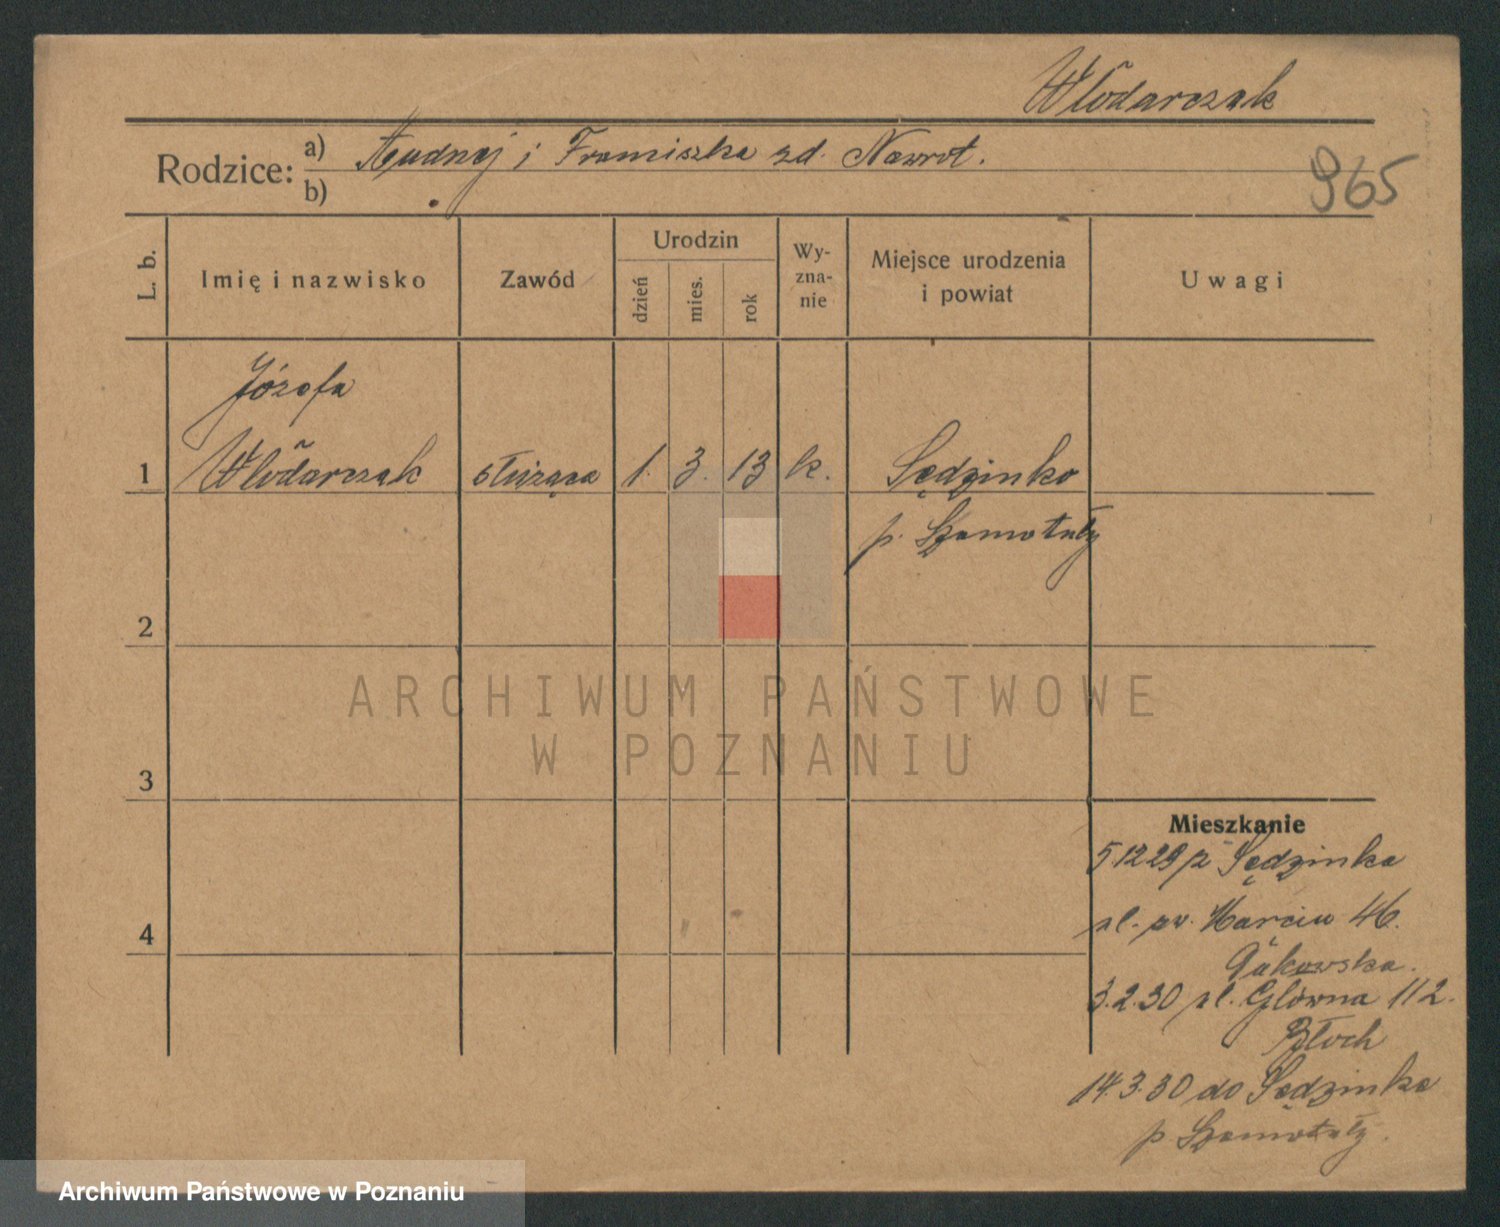 Włodarczak
Rodzice: a) Andrzej i Franciszka zd. Nawrot.
b)
965
L. b.
Imię i nazwisko
Zawód
Urodzin
dzień
mies.
rok
Wy-
zna-
nie
Miejsce urodzenia
i powiat
Uwagi
Józefa
1 Włodarczak służąca 1. 3. 13 k. Sędzinko
p. Szamotuły
2
3
4
ARCHIWUM PAŃSTWOWE
W POZNANIU
Mieszkanie
5.12.29 z Sędzinka
ul. św. Marcin 46.
3.2.30 ul. Główna 112.
Błoch
14.3.30 do Sędzinka
p Szamotuły.
Archiwum Państwowe w Poznaniu